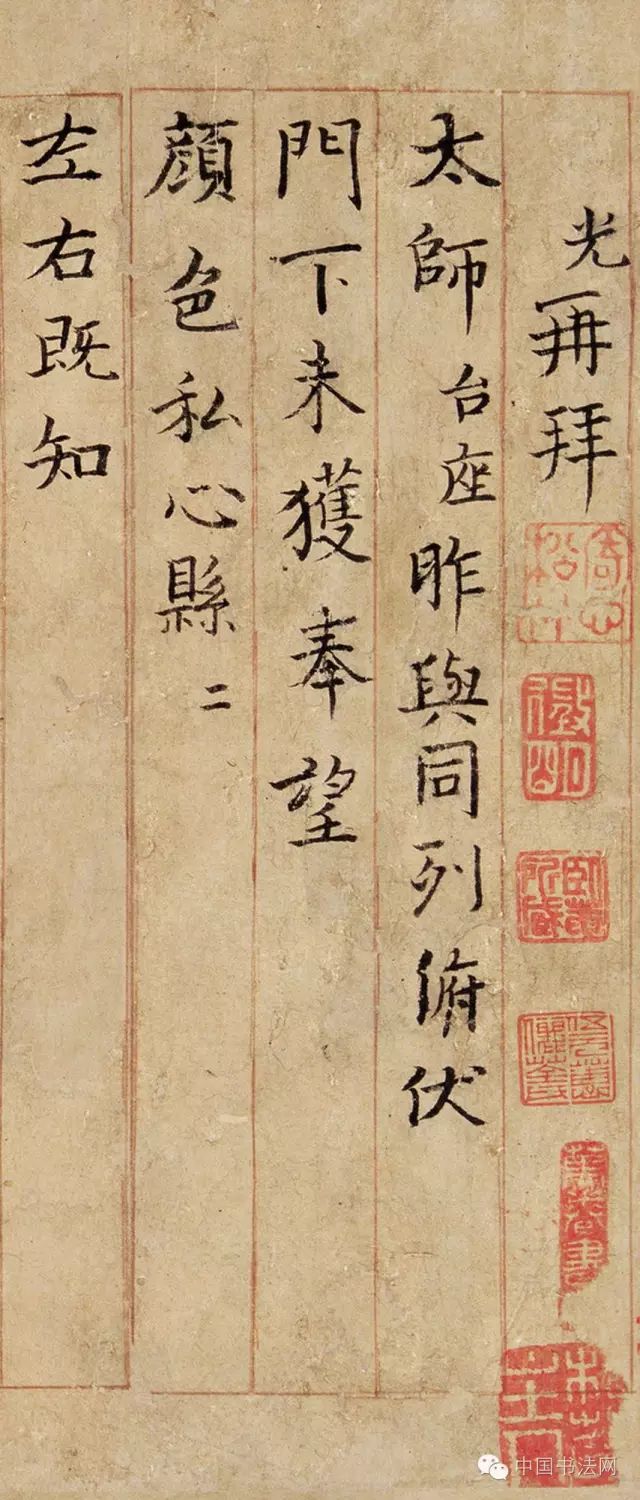 光再拜
太師台座昨與同列俯伏
門下未獲奉望
顏色私心縣二
左右既知
中国书法网